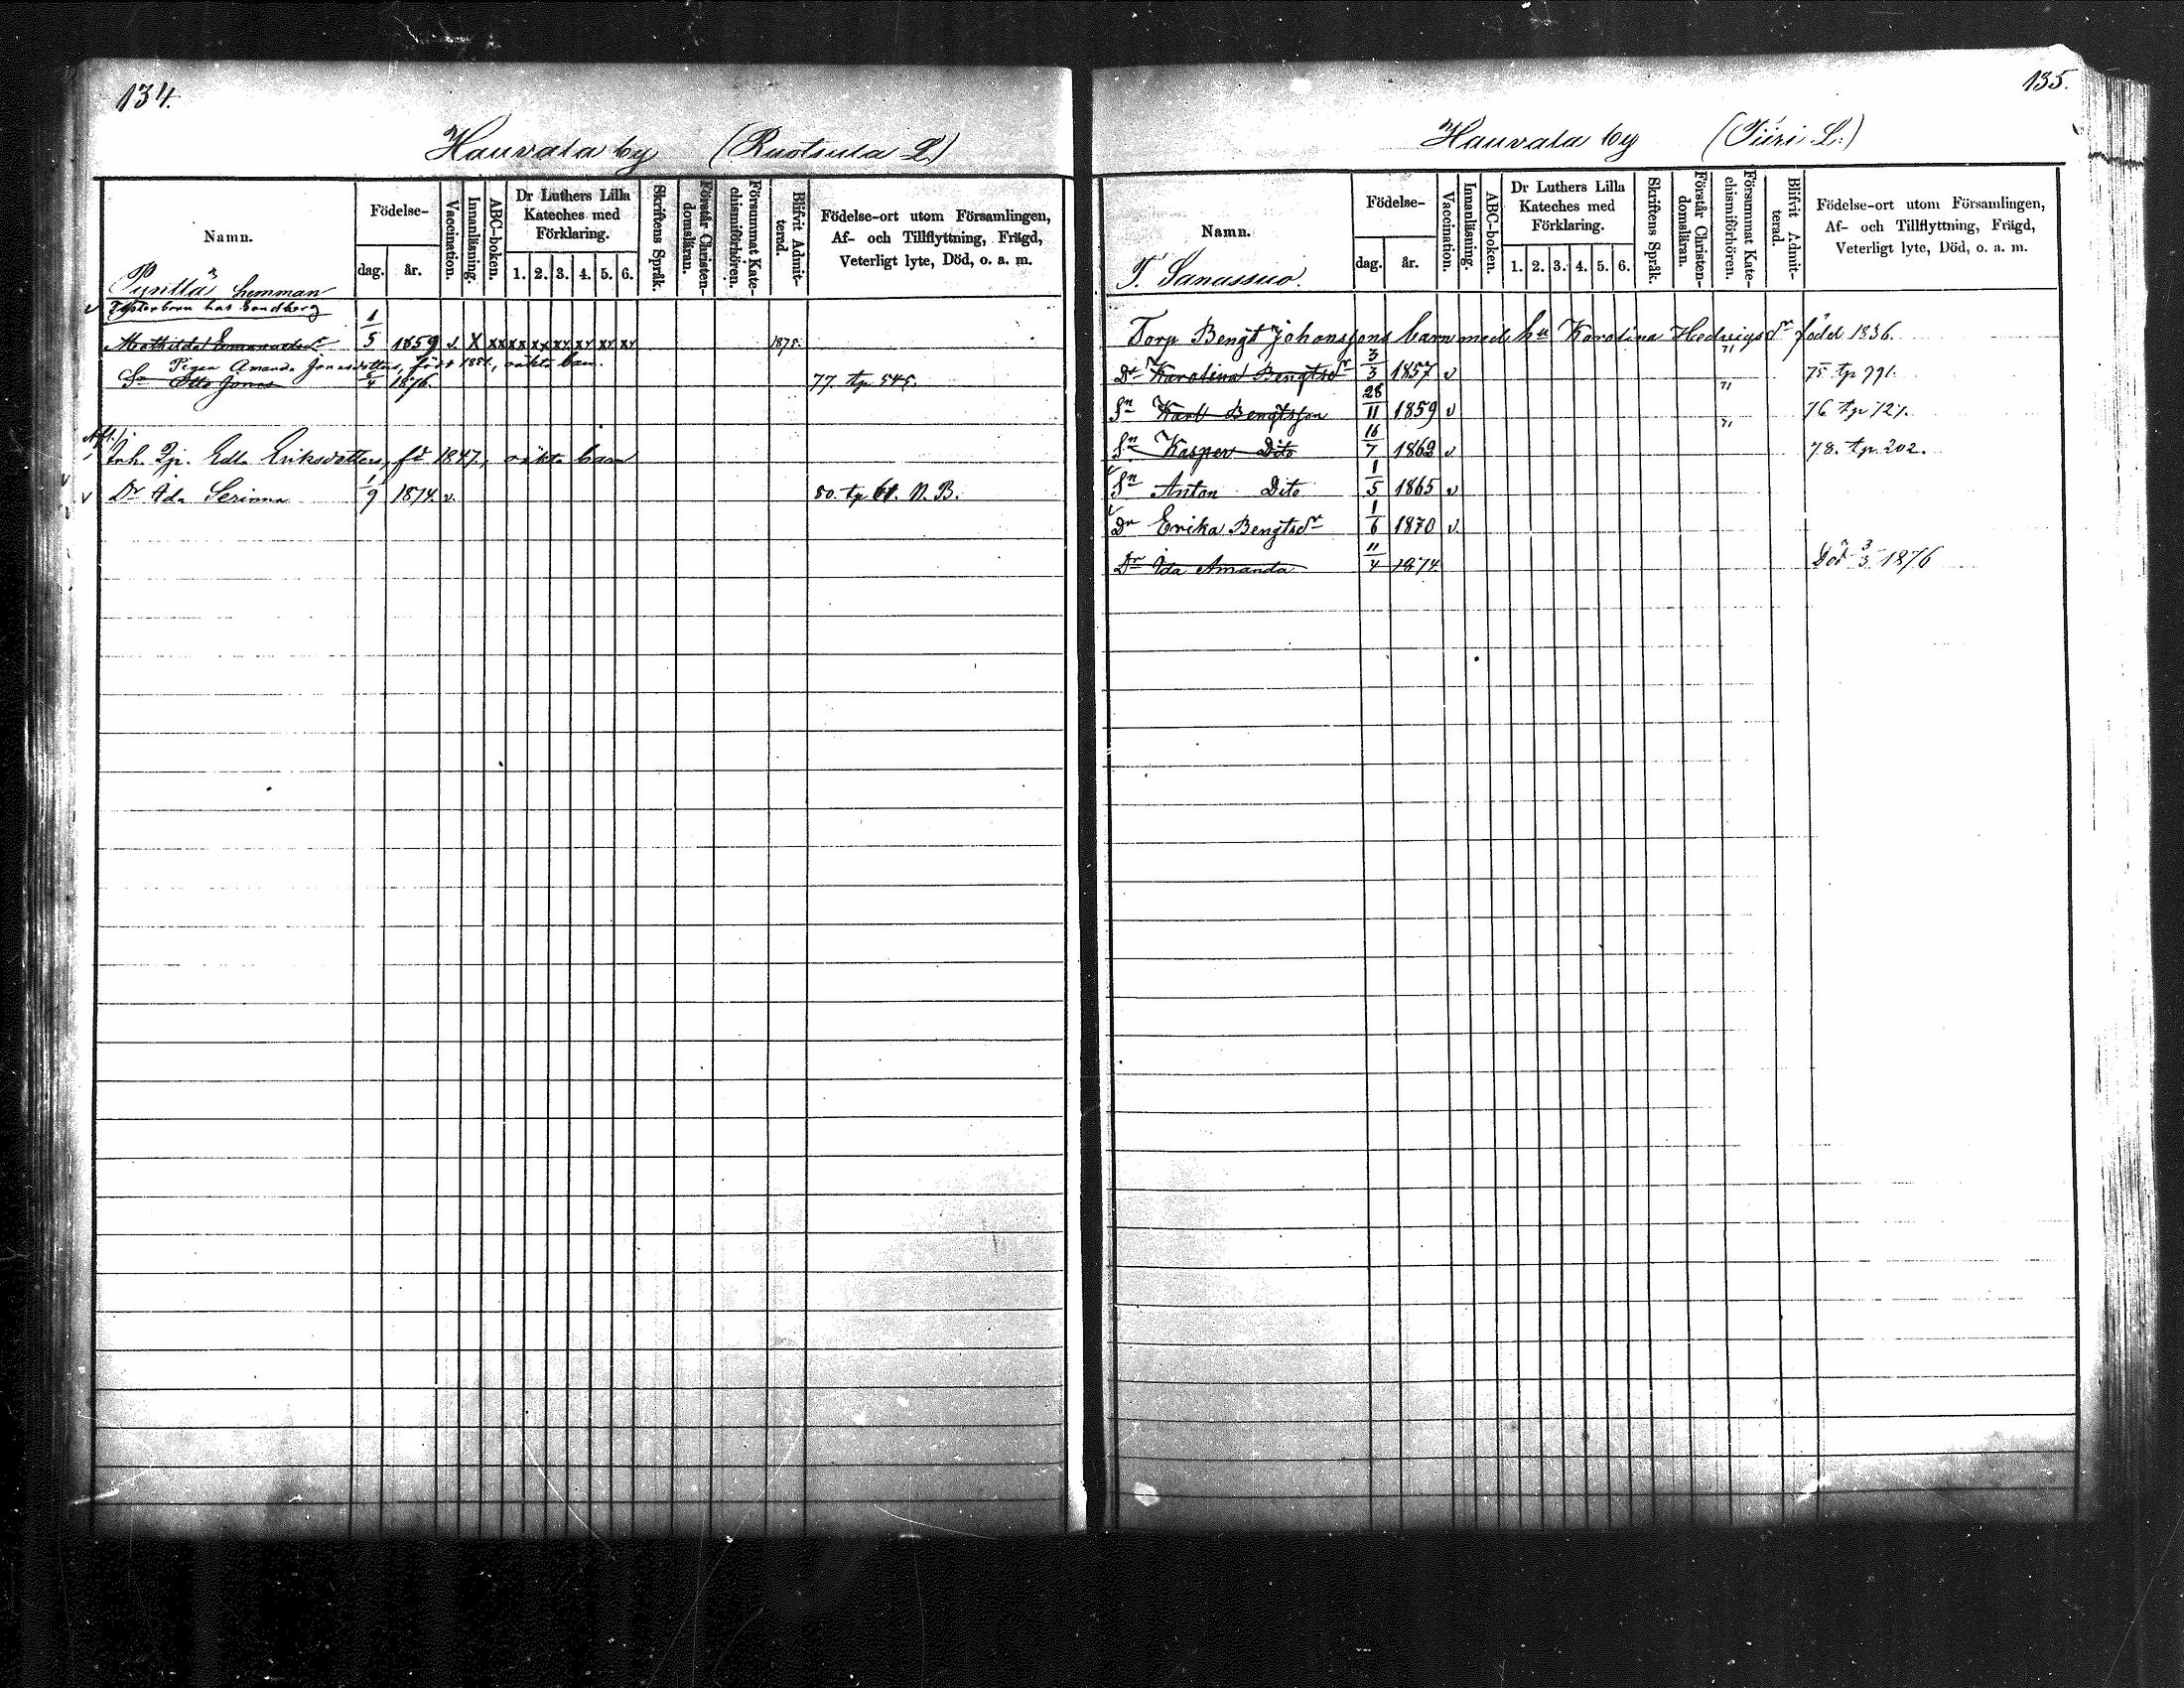 134.
Hauvala by (Ruotsula L.)
Namn.
Födelse-
dag. år.
Vaccination.
Innanläsning.
ABC-boken.
Dr Luthers Lilla Kateches med Förklaring.
1. 2. 3. 4. 5. 6.
Skriftens Språk.
Förstår Christendomsläran.
Försummat Katechismiförhören.
Blifvit Admitterad.
Födelse-ort utom Församlingen,
Af- och Tillflyttning, Frägd,
Veterligt lyte, Död, o. a. m.
hemman
Fosterbarn hos Sandberg
Mathilda Emanuelsdr 1/5 1859 v. X xx xx xx xx xx xx xx 1875.
Pigan Amanda Jonasdotters, född 1851, oäkta barn.
Sn Otto Jonas 5/4 1876. 77. tp 545.
Inh. Pg. Edla Eriksdotters, fd 1847, oäkta barn
v Dr Ida Serinna 1/9 1874 v. 80. tp 61. N. B.
135.
Hauvala by (Tiiri L.)
Namn.
Födelse-
dag. år.
Vaccination.
Innanläsning.
ABC-boken.
Dr Luthers Lilla Kateches med Förklaring.
1. 2. 3. 4. 5. 6.
Skriftens Språk.
Förstår Christendomsläran.
Försummat Katechismiförhören.
Blifvit Admitterad.
Födelse-ort utom Församlingen,
Af- och Tillflyttning, Frägd,
Veterligt lyte, Död, o. a. m.
T. Sanassuo.
Torp Bengt Johanssons barn med hu Karolina Hedvigsdr född 1836.
Dr Karolina Bengtsdr 3/3 1857 v " 75. tp 991.
Sn Karl Bengtsson 28/11 1859 v " 76 tp 721.
Sn Kasper Dito 16/7 1862 v " 78. tp. 202.
Sn Anton Dito 1/5 1865 v
Dr Erika Bengtsdr 1/6 1870 v.
Dr Ida Amanda 11/4 1874 Död 3/3 1876